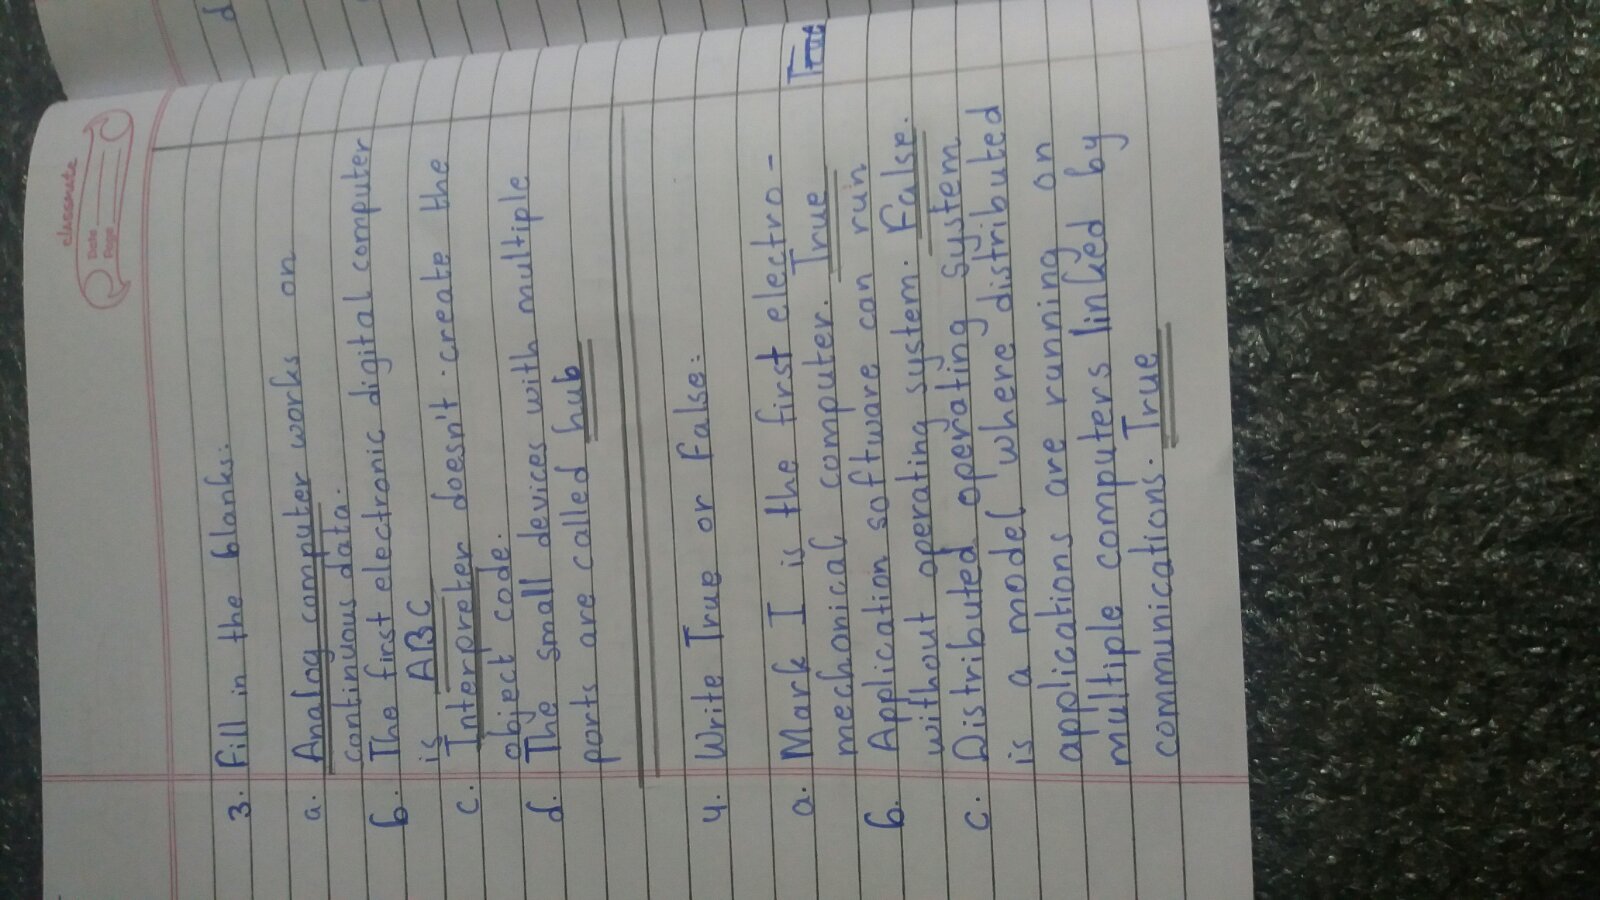 classmate
Date
Page
3. Fill in the blanks:
a. Analog computer works on
continuous data.
b. The first electronic digital computer
is ABC
c. Interpreter doesn't create the
object code.
d. The small devices with multiple
ports are called hub
4. Write True or False:
a. Mark I is the first electro-
mechanical computer. True
b. Application software can run
without operating system. False.
c. Distributed operating system
is a model where distributed
applications are running on
multiple computers linked by
communications. True